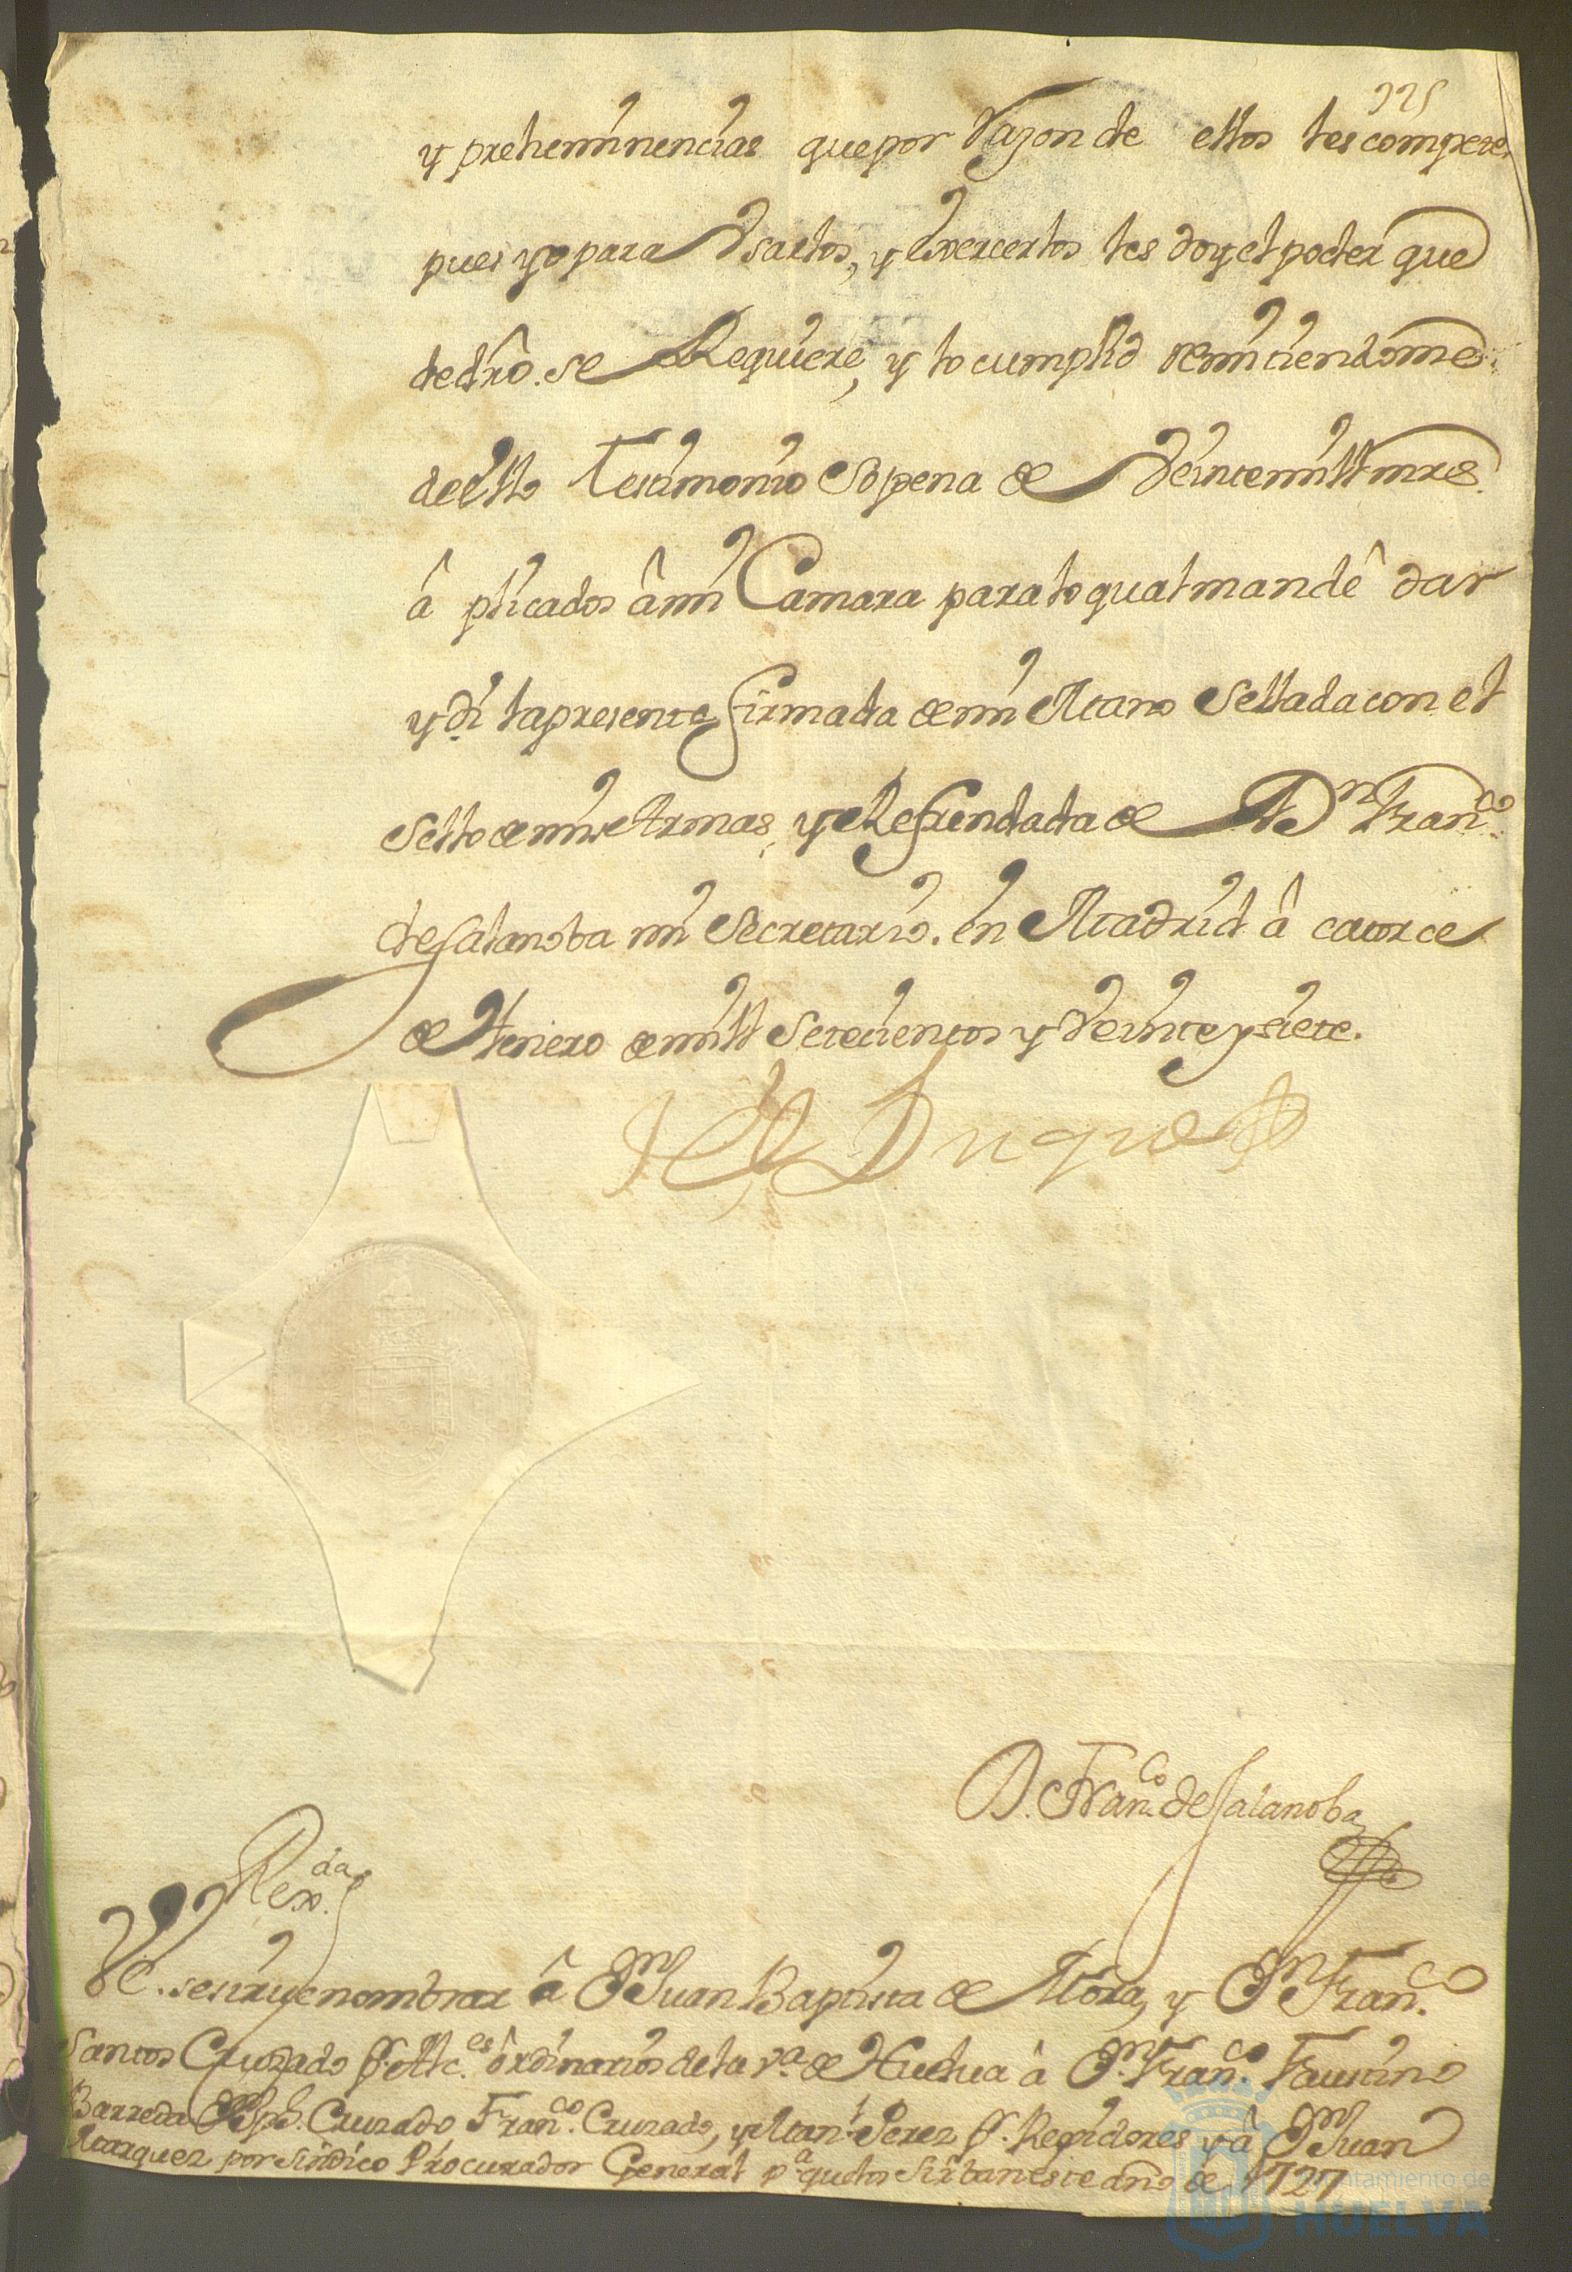 225
y preheminencias que por Razon de ellos les compete
pues yo para Vsarlos, y Exercerlos les doy el poder que
de dro. se Requiere, y lo cumplid remitiendome
de ello Testimonio So pena de Veinte mill mrs.
â plicados â mi Camara para lo qual mandê dar
y di la presente firmada de mi Mano Sellada con el
Sello de mis Armas, y Refrendada de Dn. Franco.
de Salanoba mi Secretario. en Madrid â catorce
de Henero de mill Setecientos y Veinte y siete.
El Duque
D. Franco. de Salanoba
Rexda.
VE. se sirve nombrar â Dn. Juan Baptista de Mora, y Dn. Franco.
Santos Cruzado pr. Alces. ôrdinarios de la va. de Huelva â Dn. Franco. Faustino
Barreda Dn. Cruzado Franco. Cruzado, y Man.l Perez pr. Regidores y â Dn. Juan
Marquez por Sindico Procurador General pa. que los Sirban este año de 1727
Ayuntamiento de
HUELVA